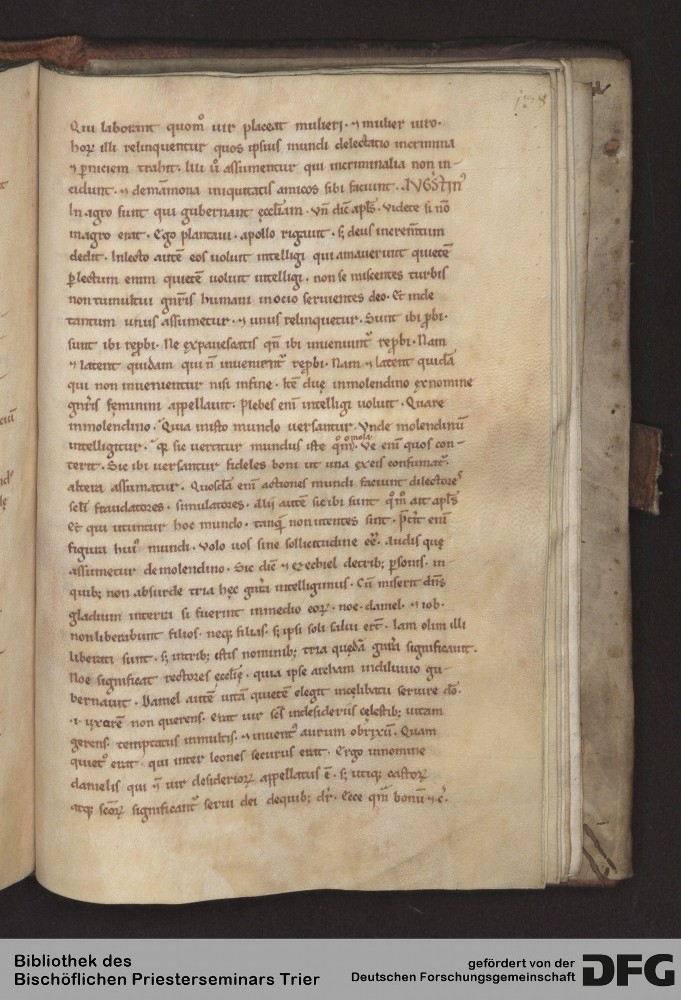 138
Qui laborant quom̊ uir placeat mulieri · ⁊ mulier uiro ·
hoꝝ illi relinquentur quos ipsius mundi delectatio incrimina
⁊ ꝑniciem trahit · Illi ů assumentur qui incriminalia non in-
cidunt · ⁊ demāmona iniquitatis amicos sibi faciunt · AVGVSTIN᾽
In agro sunt qui gubernant ęccl̄iam · Vn̄ dic̄ apl̄s · Videte si nō
inagro erat · Ego plantaui · apollo rigauit · s; deus incrementum
dedit · Inlecto autē eos uoluit intelligi qui amauerunt quietē
ꝑlectum enim quietē uoluit intelligi · non se miscentes turbis
non tumultui gn̄ris humani inocio seruientes deo · Et inde
tantum unus assumetur · ⁊ unus relinquetur · Sunt ibi ꝓbi ·
sunt ibi rep̄bi · Ne expauescatis qn̄ ibi inueniunt᾽ rep̄bi · Nam
⁊ latent quidam qui n̄ inuenient᾽ rep̄bi · Nam ⁊ latent quidā
qui non inuenientur nisi infine · Itē duę inmolendino ex nomine
gn̄ris feminini appellauit · Plebes enī intelligi uoluit · Quare
inmolendino · Quia insto mundo uersantur · Vnde molendinū
intelligitur · qꝛ sic uertitur mundus iste qm̊ mola · Ve enī quos con-
terit · Sic ibi uersantur fideles boni ut una ex eis consumat᾽ ·
altera assumatur · Quosdā enī actiones mundi faciunt dilectores
scl̄i fraudatores · simulatores · Alij autē sic ibi sunt qm̊ ait apl̄s
Et qui utuntur hoc mundo · tanꝗ non utentes sint · p̄t̄it enī
figura hui᾽ mundi · volo uos sine sollicitudine eē · Audis quę
assumetur demolendino · Sic dic̄ ⁊ ezechiel detrib; ꝑsonis · in-
quib; non absurde tria hęc gn̄ra intelligimus · Cū miserit dn̄s
gladium interrā si fuerint inmedio eoꝝ · noe · daniel · ⁊ iob ·
non liberabunt filios · neq; filias · s; ipsi soli salui ert̄ · Iam olim illi
liberati sunt · s; intrib; istis nominib; tria quędā gn̄ra significauit ·
Noe significat rectores ęccl̄ię · quia ipse archam indiluuio gu-
bernauit · Daniel autē uitā quietē elegit incelibatu seruire dō ·
·i· uxorē non querens · erat uir scl̄s indesideriis cęlestib; uitam
gerens · temptatus inmultis · ⁊ inuent᾽ aurum obrizū · Quam
quiet᾽ erat · qui inter leones securus erat · Ergo innomine
danielis qui ⁊ uir desiderioꝝ appellatus ē · s; utiq; castoꝝ
atq; sc̄oꝝ significant᾽ serui dei dequib; dr̄ · Ecce qm̄ bonū ⁊ c̄ ·
Bibliothek des
Bischöflichen Priesterseminars Trier
gefördert von der
Deutschen Forschungsgemeinschaft
DFG